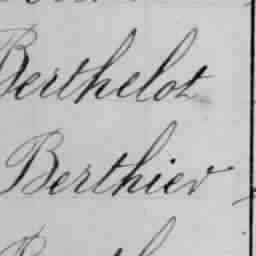 Berthelot
Berthier